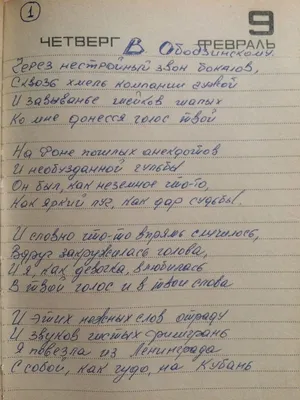 1
ЧЕТВЕРГ 9 ФЕВРАЛЬ
В. Ободзинскому.
Через нестройный звон бокалов,
Сквозь хмель компании чужой
И завыванье шейков шалых
Ко мне донесся голос твой
На фоне пошлых анекдотов
И необузданной гульбы
Он был, как неземное что-то,
Как яркий луч, как дар судьбы.
И словно что-то впрямь случилось,
Вдруг закружилась голова,
И я, как девочка, влюбилась
В твой голос и в твои слова
И этих нежных слов отраду
И звуков чистых филигрань
Я повезла из Ленинграда
С собой, как чудо, на Кубань